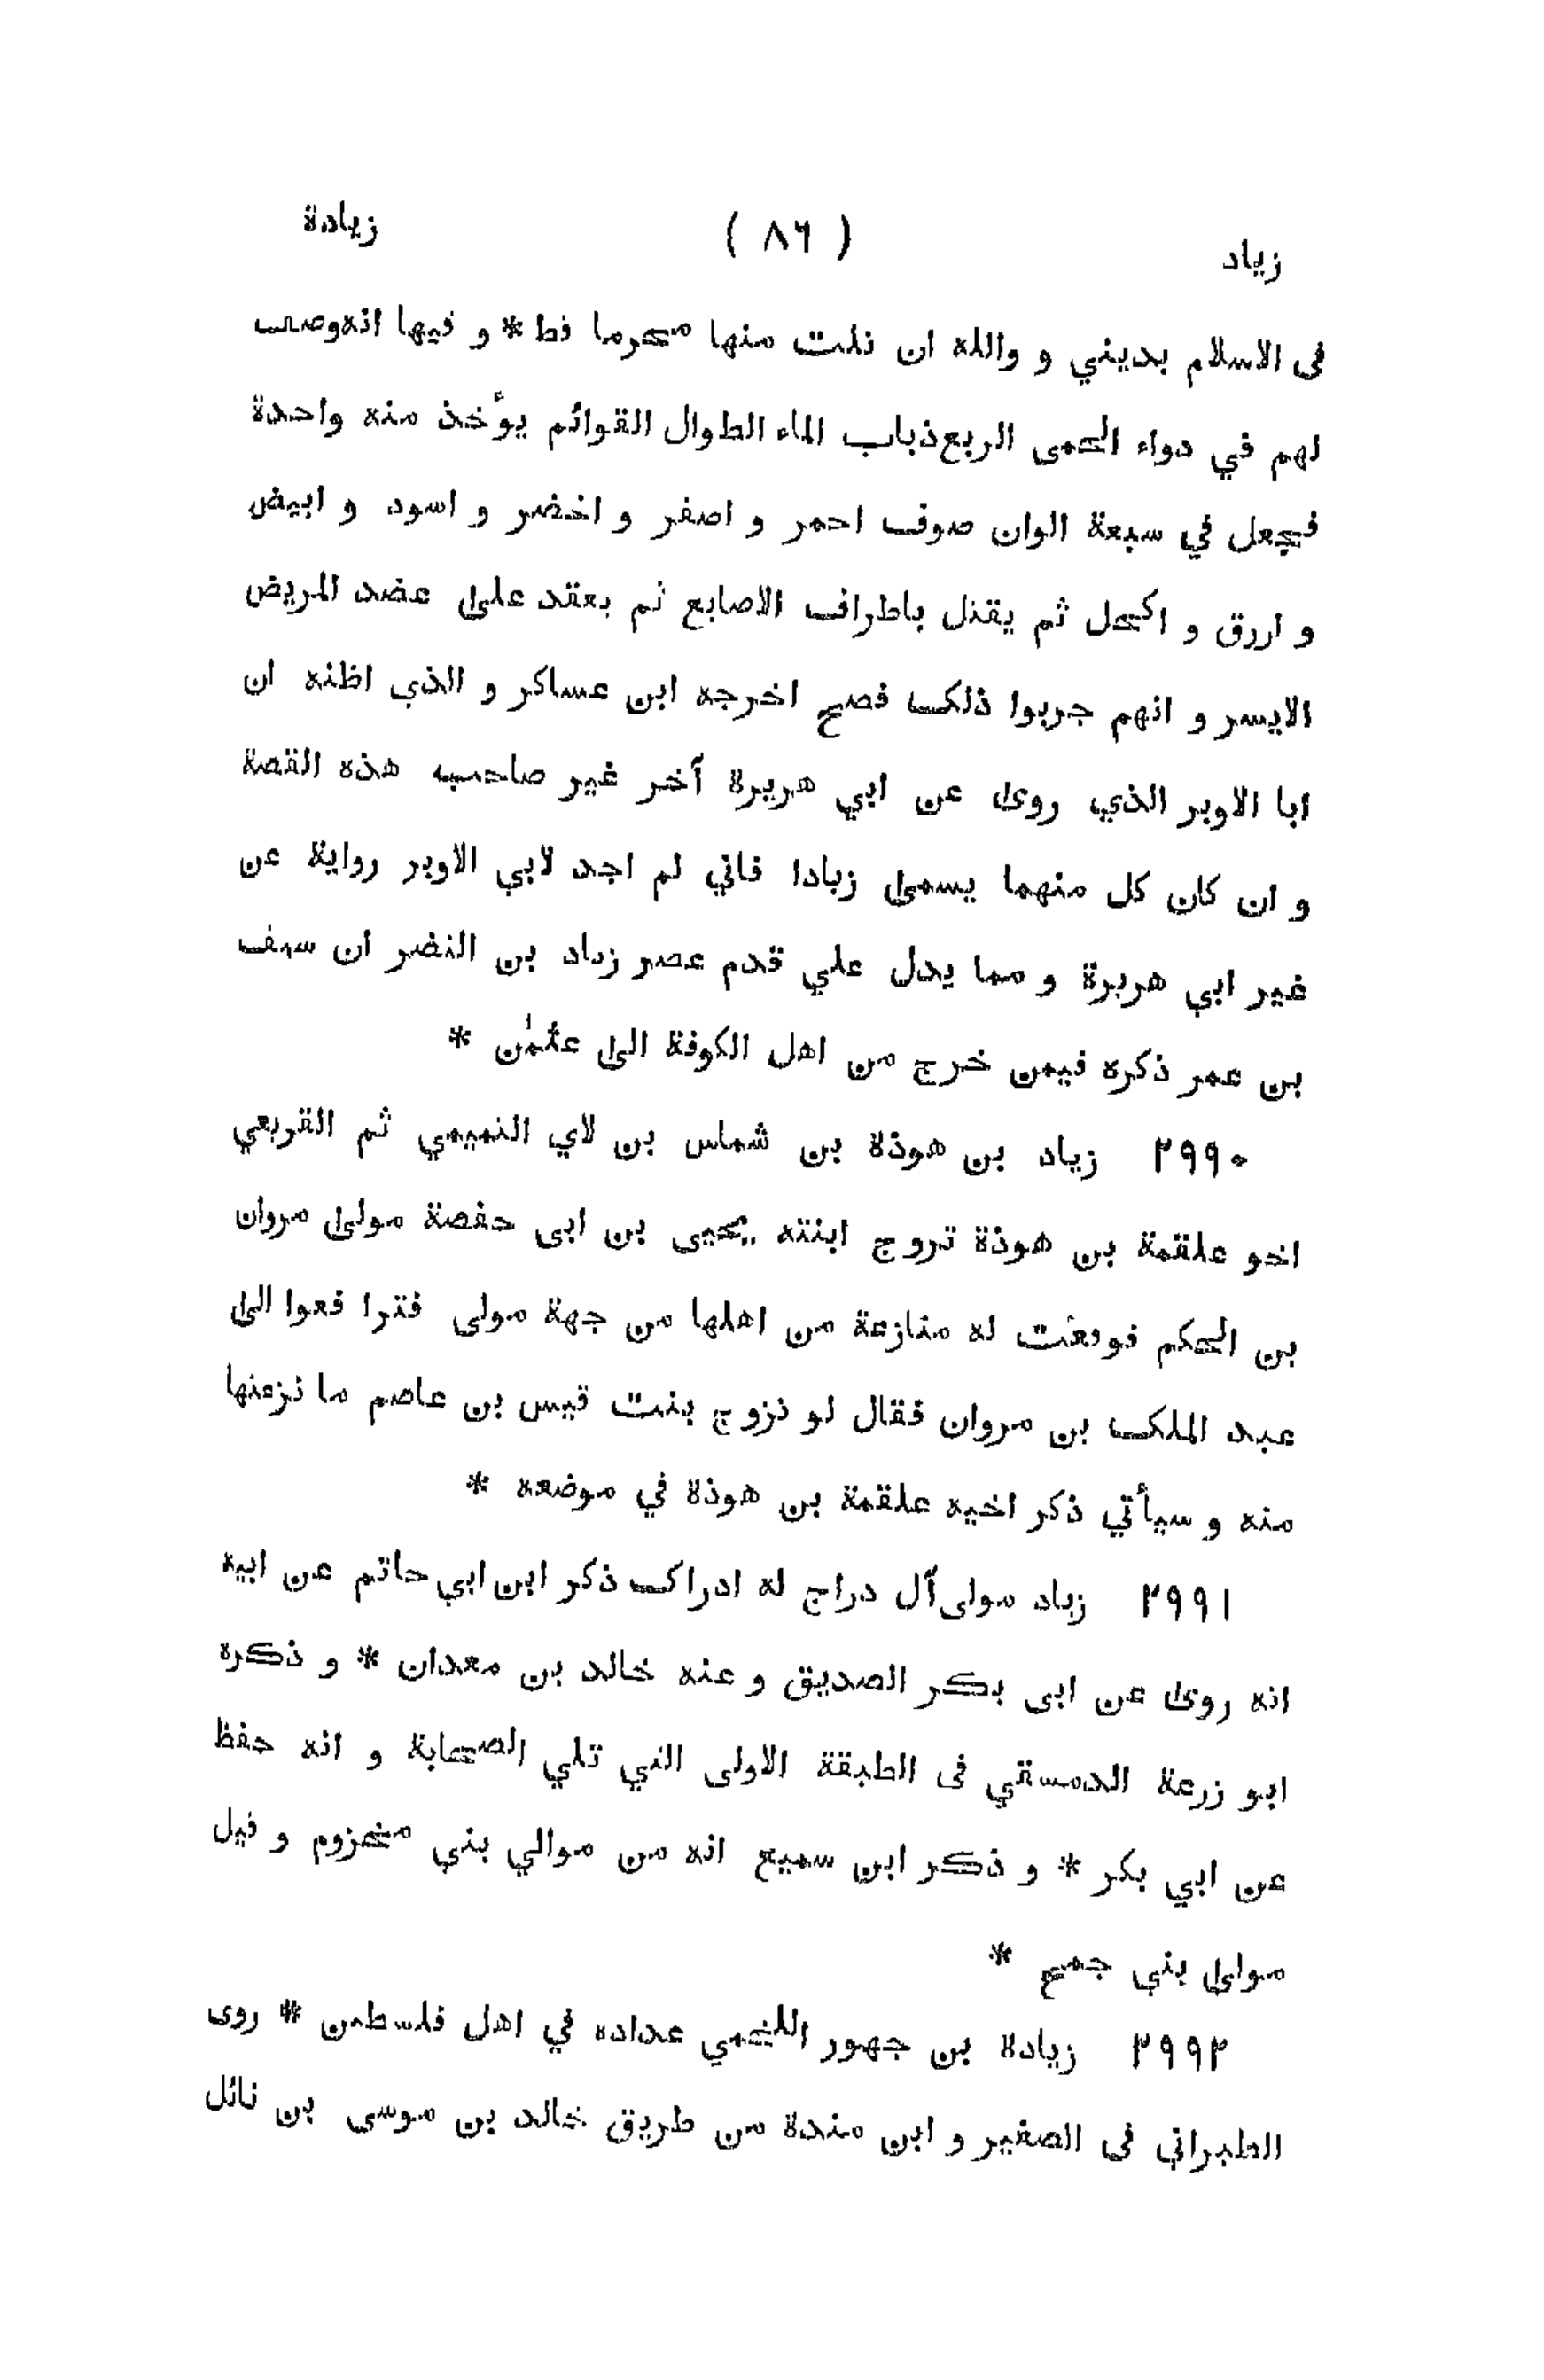 زياد ( ٨٦ ) زيادة
فى الاسلام بديني و والله ان نلت منها محرما قط * و فيها انه وصف
لهم في دواء الحمى الربع ذباب الماء الطوال القوائم يوٴخذ منه واحدة
فيجعل في سبعة الوان صوف احمر و اصفر و اخضر و اسود و ابيض
و ازرق و اكحل ثم يفتل باطراف الاصابع ثم يعقد على عضد المريض
الايسر و انهم جربوا ذلك فصح اخرجه ابن عساكر و الذي اظنه ان
ابا الاوبر الذي روى عن ابي هريرة آخر غير صاحب هذه القصة
و ان كان كل منهما يسمى زيادا فاني لم اجد لابي الاوبر رواية عن
غير ابي هريرة و مما يدل علي قدم عصر زياد بن النضر ان سيف
بن عمر ذكره فيمن خرج من اهل الكوفة الى عثمٰن *
٢٩٩٠ زياد بن هوذة بن شماس بن لاي التميمي ثم القريعي
اخو علقمة بن هوذة تزوج ابنته يحيى بن ابى حفصة مولى مروان
بن الحكم فوقعت له منازعة من اهلها من جهة مولى فترا فعوا الى
عبد الملك بن مروان فقال لو تزوج بنت قيس بن عاصم ما نزعتها
منه و سيأتي ذكر اخيه علقمة بن هوذة في موضعه *
٢٩٩١ زياد مولى آل دراج له ادراك ذكر ابن ابي حاتم عن ابيه
انه روى عن ابى بكر الصديق و عنه خالد بن معدان * و ذكره
ابو زرعة الدمشقي فى الطبقة الاولى التي تلي الصحابة و انه حفظ
عن ابي بكر * و ذكر ابن سميع انه من موالي بني مخزوم و قيل
مولى بني جمح *
٢٩٩٢ زيادة بن جهور اللخمي عداده في اهل فلسطين * روى
الطبراني فى الصغير و ابن مندة من طريق خالد بن موسى بن نائل